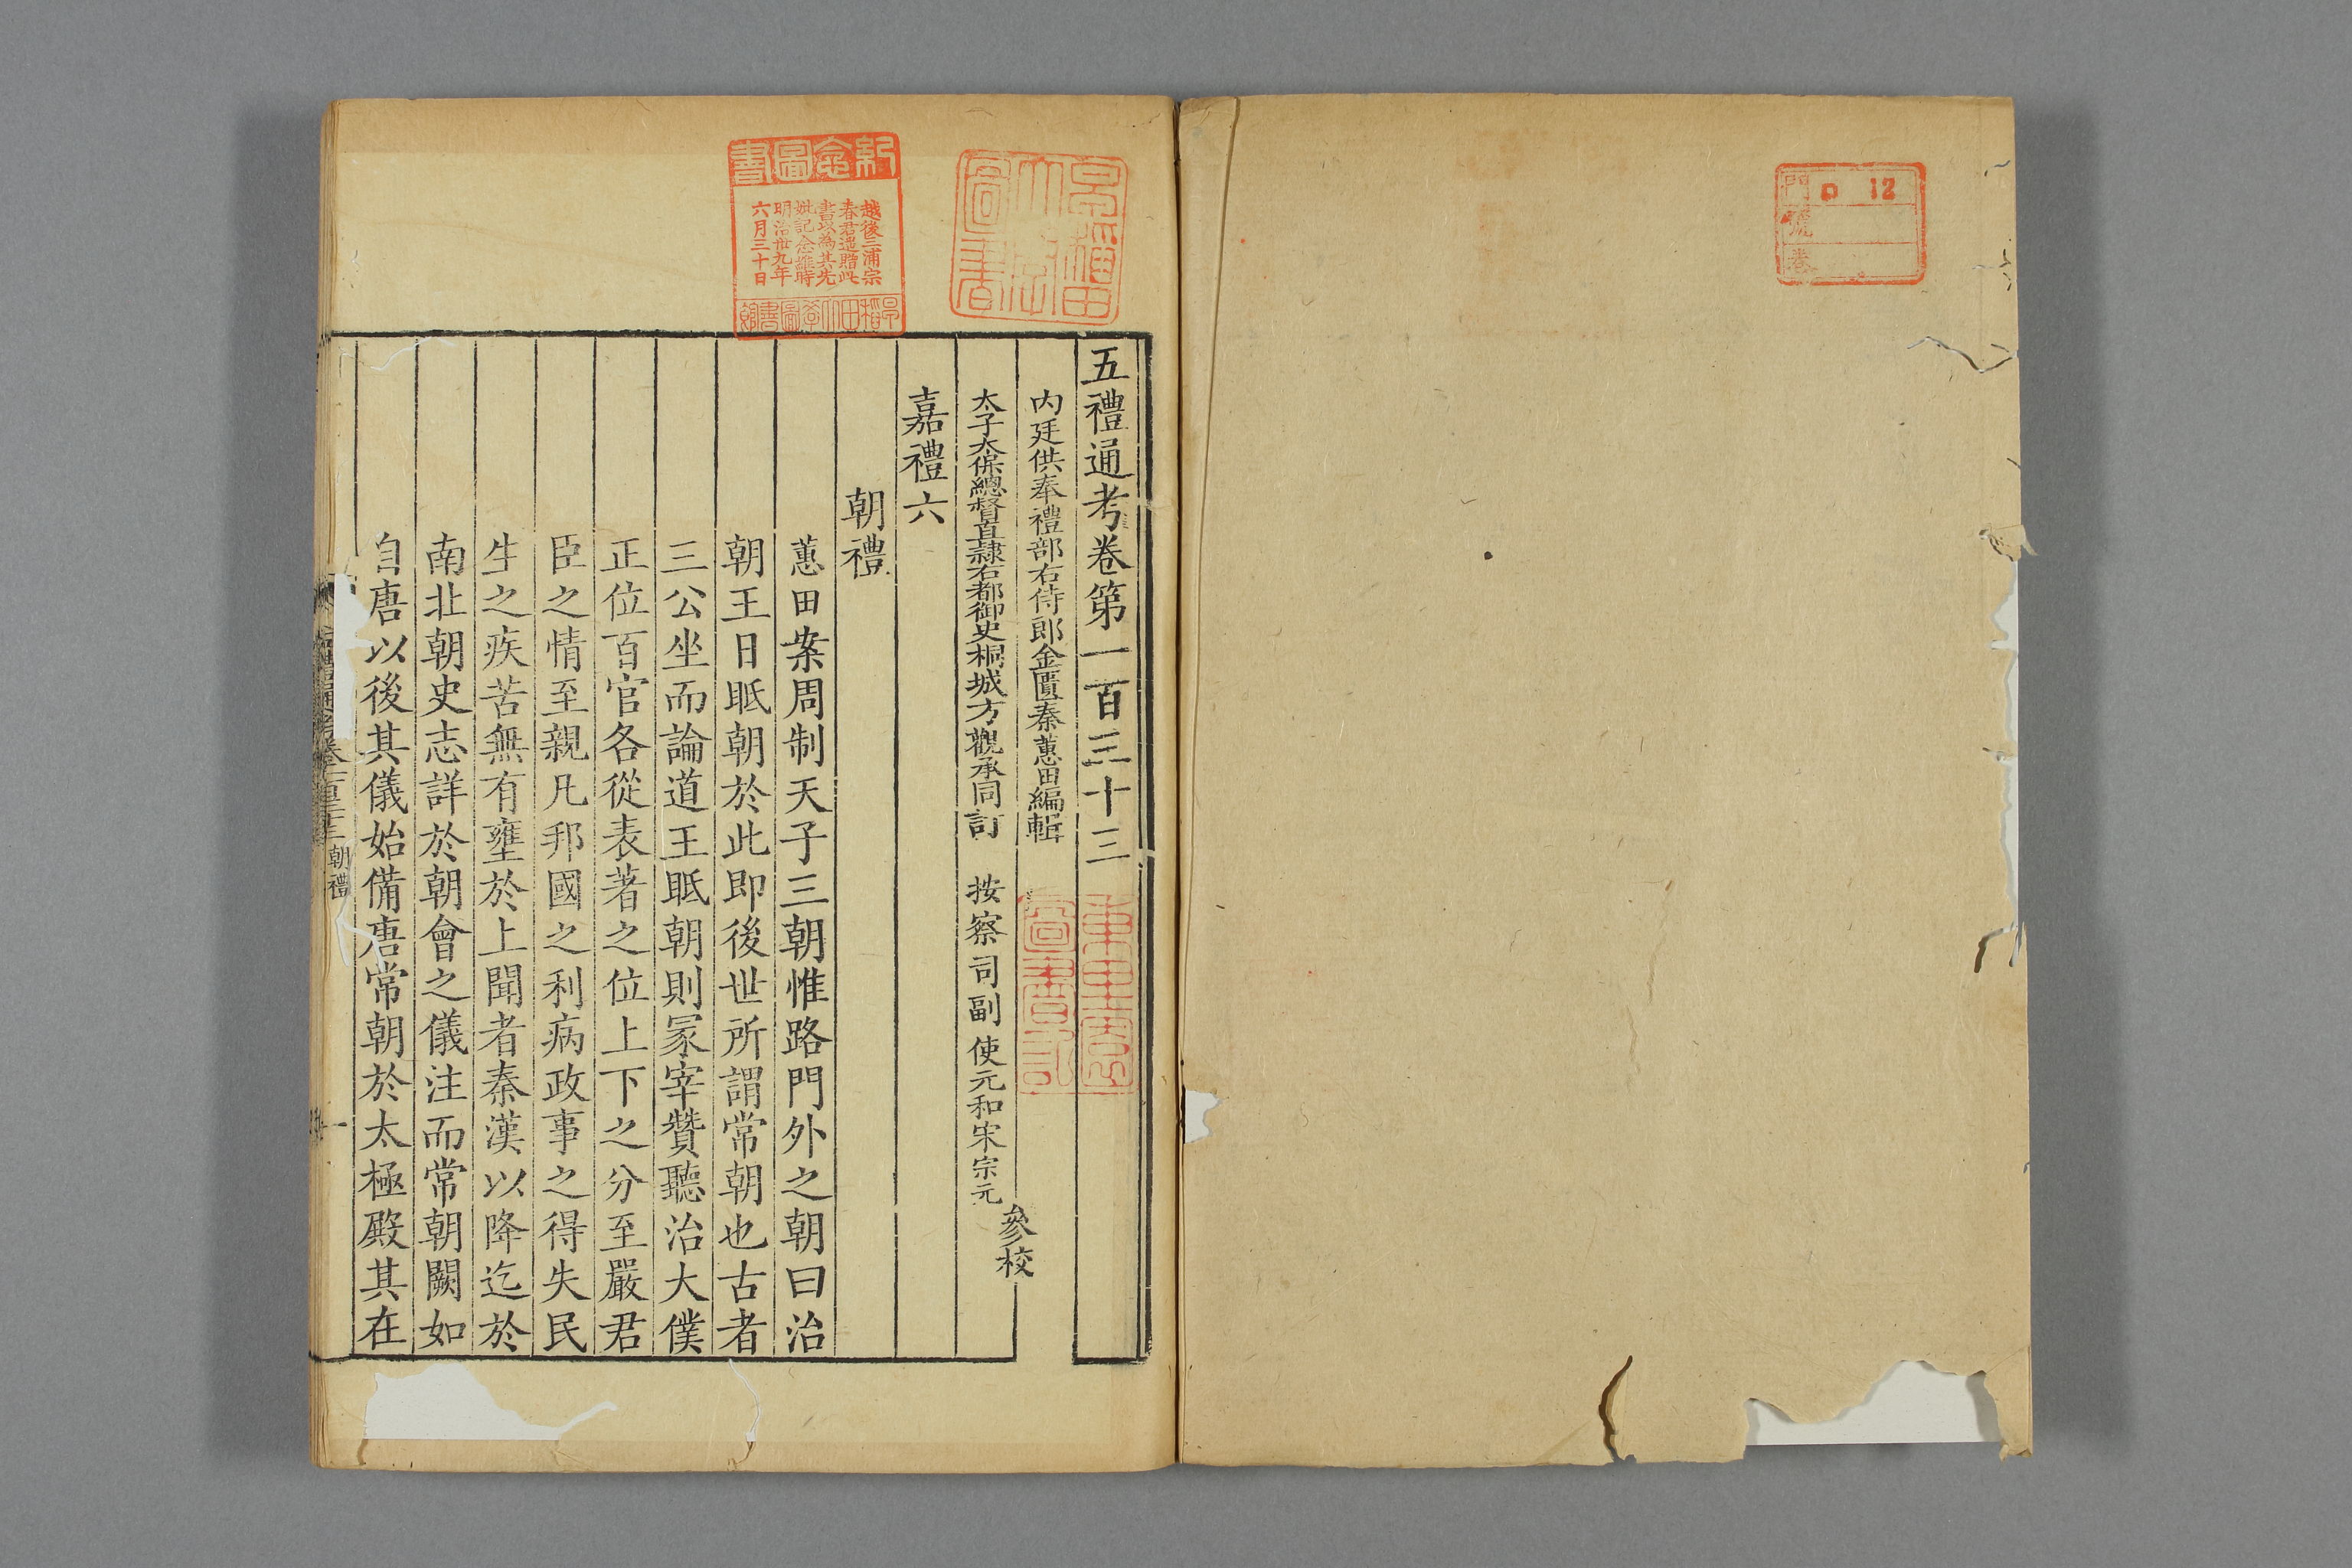 門 ロ 12
號
巻
五禮通考卷第一百三十三
内廷供奉禮部右侍郎金匱秦蕙田編輯
太子太保總督直隸右都御史桐城方觀承同訂 按察司副使元和宋宗元 參校
嘉禮六
朝禮
蕙田案周制天子三朝惟路門外之朝曰治
朝王日眡朝於此即後世所謂常朝也古者
三公坐而論道王眡朝則冡宰贊聽治大僕
正位百官各從表著之位上下之分至嚴君
臣之情至親凡邦國之利病政事之得失民
生之疾苦無有壅於上聞者秦漢以降迄於
南北朝史志詳於朝會之儀注而常朝闕如
自唐以後其儀始備唐常朝於太極殿其在
五禮通考卷一百三十三 朝禮 一
早稻田大學圖書
紀念圖書
越後三浦宗
春君遺贈此
書以為其先
妣記念維時
明治卅九年
六月三十日
早稻田大學圖書館